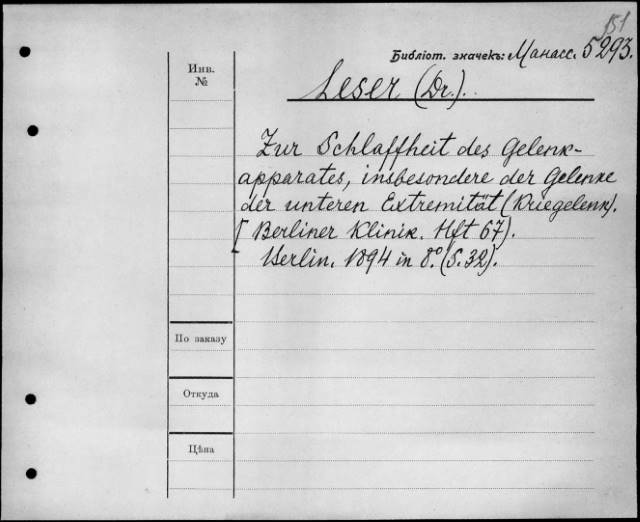 151
Библіот. значекъ: Манасс. 5293.
Инв.
№
Leser (Dr.).
Zur Schlaffheit des Gelenk-
apparates, insbesondere der Gelenke
der unteren Extremität (Kniegelenk).
[Berliner Klinik. Hft 67).
Berlin. 1894 in 8º. (S. 32).
По заказу
Откуда
Цѣна